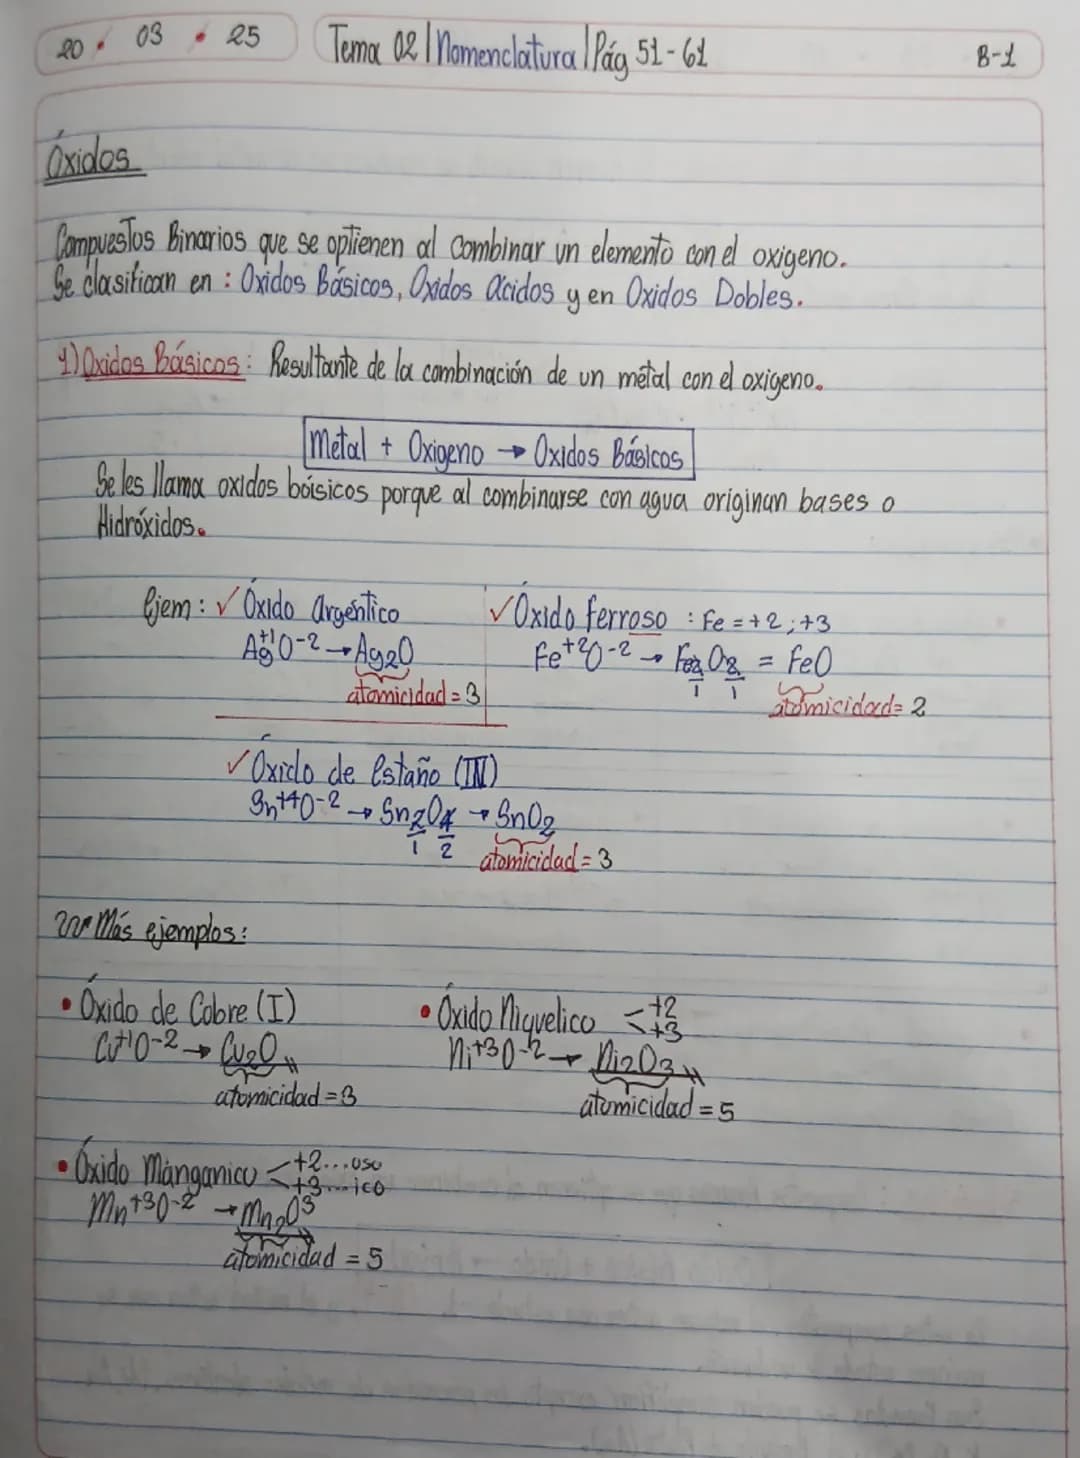 20 • 03 • 25
Tema 02 | Nomenclatura | Pág 51-61
B-1
Óxidos
Compuestos Binarios que se optienen al combinar un elemento con el oxigeno.
Se clasifican en : Oxidos Básicos, Oxidos ácidos y en Oxidos Dobles.
1) Oxidos Básicos: Resultante de la combinación de un métal con el oxigeno.
Metal + Oxigeno → Oxidos Básicos
Se les llama oxidos básicos porque al combinarse con agua originan bases o
Hidróxidos.
Ejem: ✓ Óxido Argéntico
Ag⁺¹O⁻² → Ag₂O
atomicidad = 3
✓ Óxido ferroso : Fe = +2 ; +3
Fe⁺²O⁻² → Fe₂O₂ = FeO
1 1
atomicidad = 2
✓ Óxido de Estaño (IV)
Sn⁺⁴O⁻² → Sn₂O₄ → SnO₂
1 2
atomicidad = 3
Más ejemplos:
• Óxido de Cobre (I)
Cu⁺¹O⁻² → Cu₂O
atomicidad = 3
• Óxido Niquelico < +2
+3
Ni⁺³O⁻² → Ni₂O₃
atomicidad = 5
• Óxido Mánganico < +2...oso
+3...ico
Mn⁺³O⁻² → Mn₂O³
atomicidad = 5